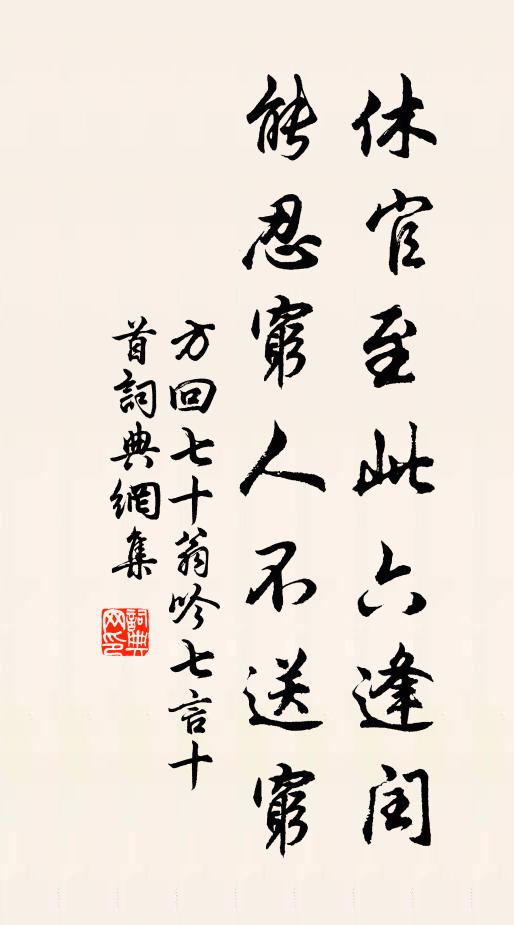 休官至此六逢閏
能忍窮人不送窮
方回七十翁吟七言十
首詞典網集
詞典
网印